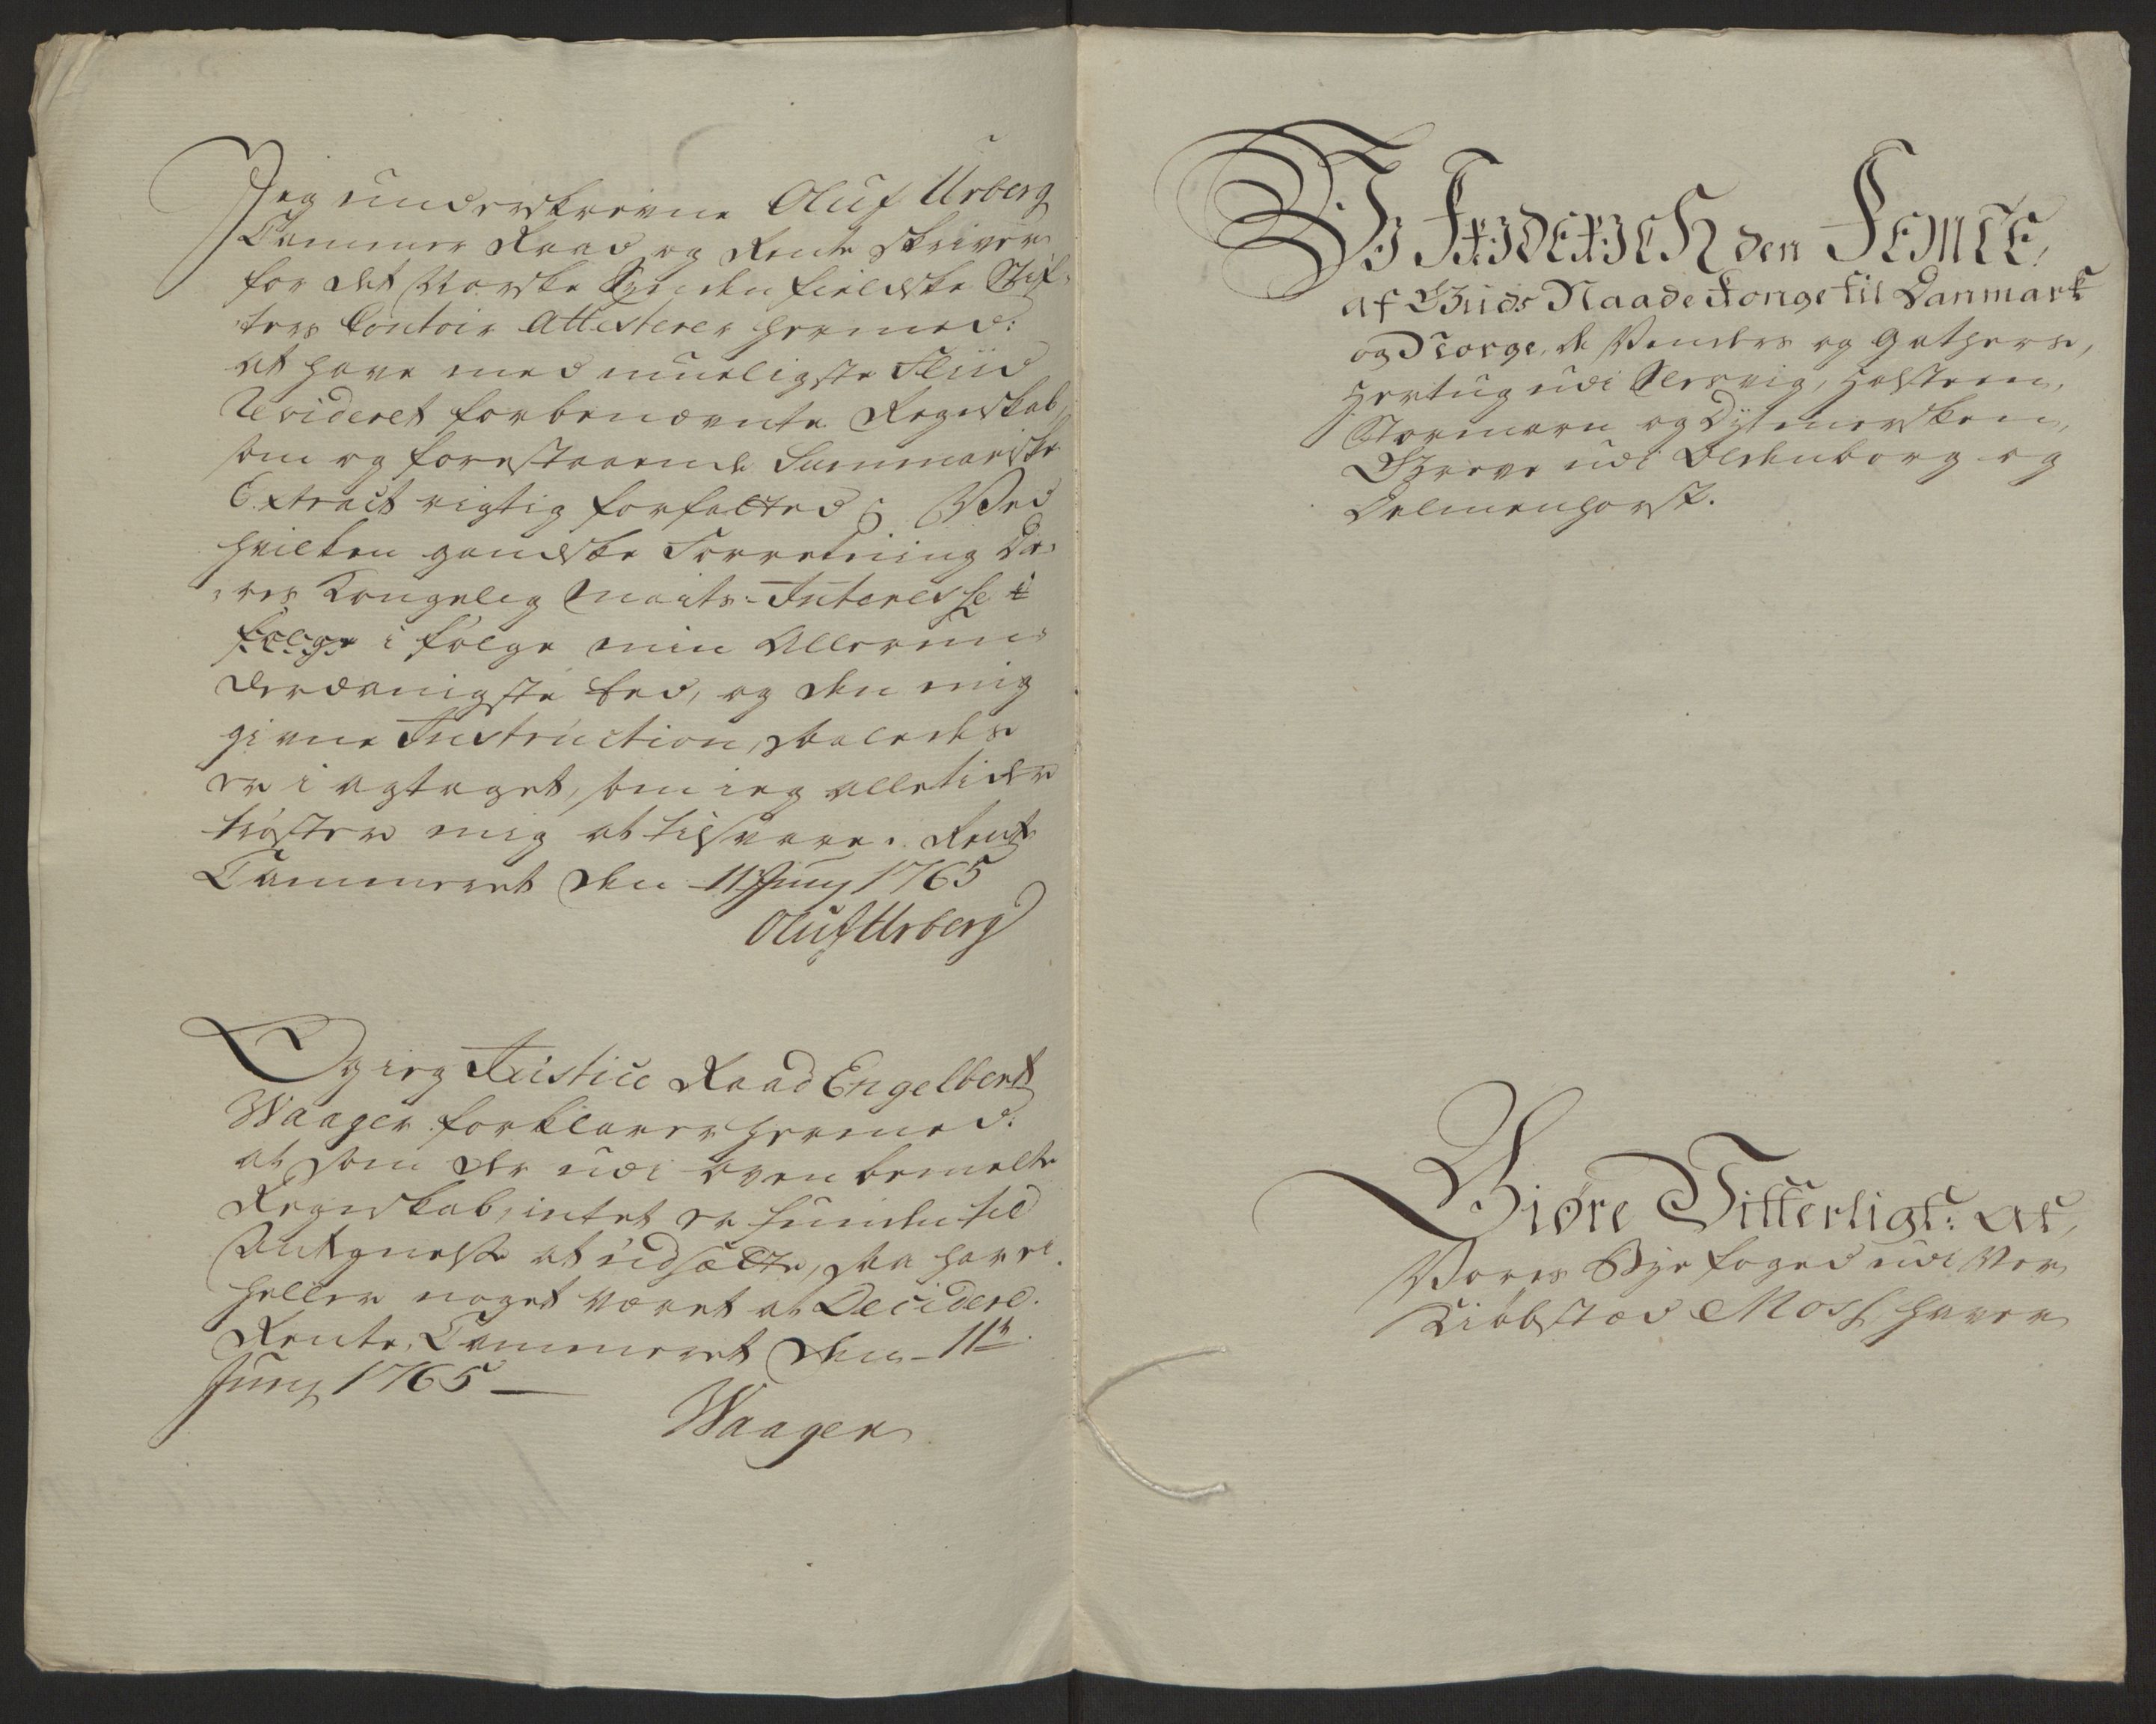 Jeg underskrevne Oluf Urberg
Cammer Raad og Rente Skriver
for det Norske Synden fieldske Stif-
ters Contoir Attesterer hermed:
at have med mueligste Fliid
Revideret forbenævnte Regnskab,
som og forestaaende Summariske
Extract rigtig forfatted; Ved
hvilken gandske Forretning De-
res Kongelig Maits Interesse i
følge i følge min Allerun-
derdanigste Eed, og den mig
givne Instruction, saaledes
er i agtaget, som ieg alletider
trøster mig at tilsvare. Rente
Cammeret den 11 Juny 1765
Oluf Urberg
Og ieg Justice Raad Engelbert
Waager forklarer hermed:
at som der udi ovenbemelte
Regnskab, intet er funden til
Antegnelse at udsætte, saa har ei
heller noget været at Decidere.
Rente Cammeret den 11te
Juny 1765
Waager
Vi Friderich den Femte,
af Guds Naade Konge til Danmark
og Norge, de Venders og Gothers,
Hertug udi Slesvig, Holsteen,
Stormarn og Dytmersken,
Greve udi Oldenborg og
Delmenhorst.
Giøre Vitterligt: at,
Vores Bye foged udi Vor
Kiøbstæd Moss haver